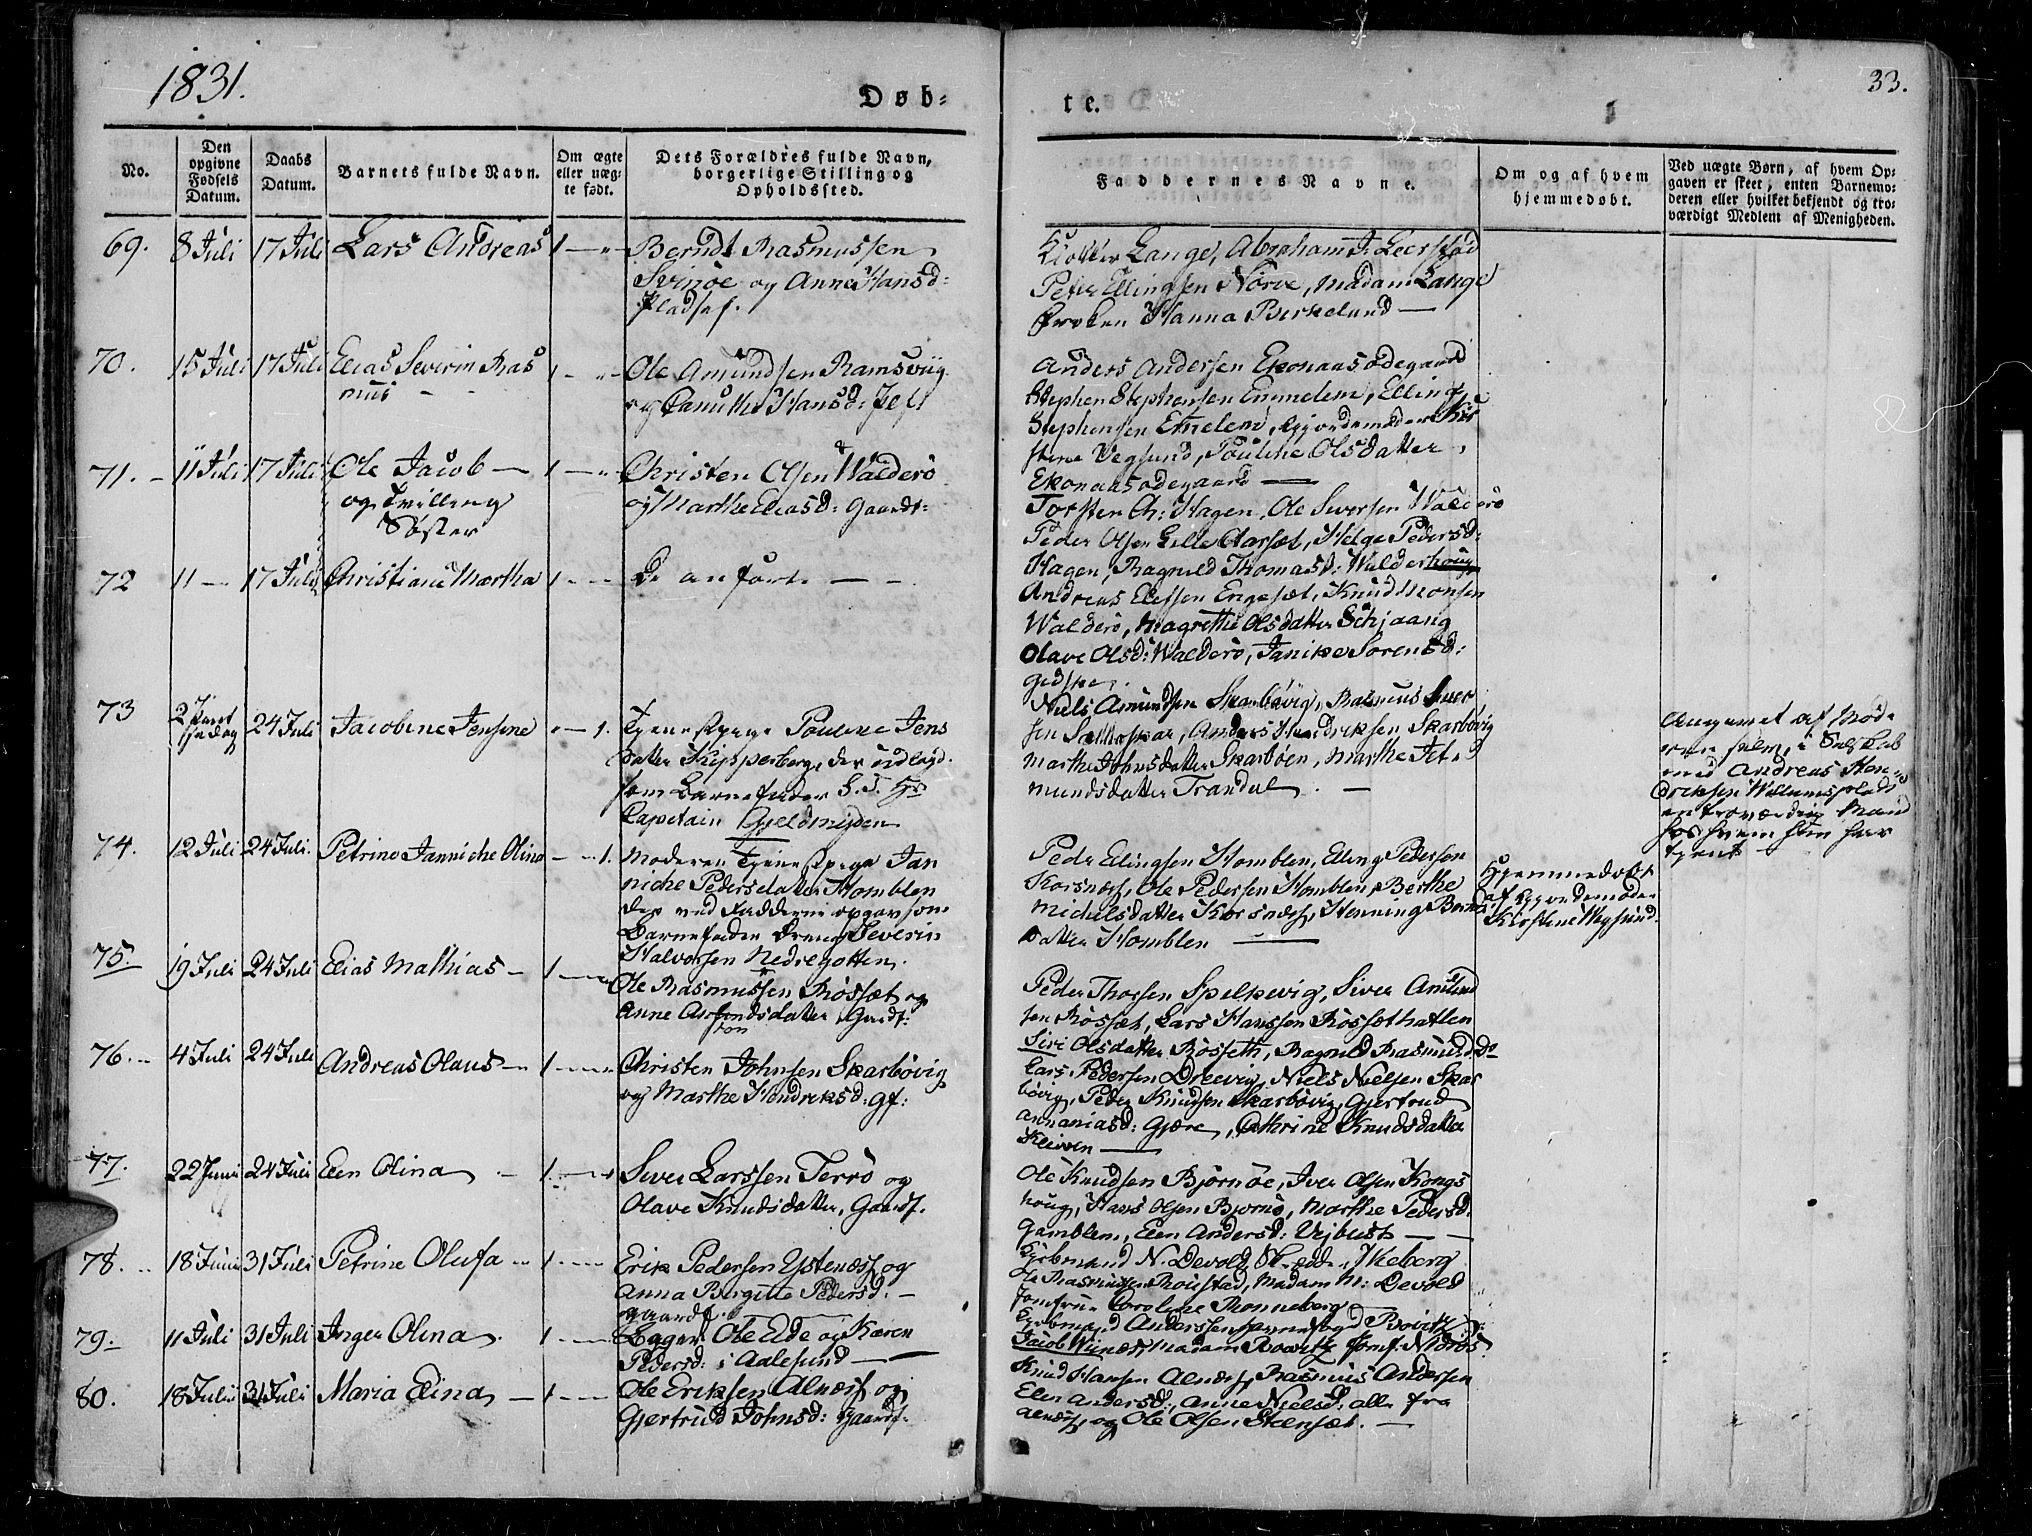 1831.
Døb-
te.
33.
No.
Den opgivne Fødsels Datum.
Daabs Datum.
Barnets fulde Navn.
Om ægte eller uæg-te født.
Dets Forældres fulde Navn, borgerlige Stilling og Opholdssted.
Faddernes Navne.
Om og af hvem hjemmedøbt.
Ved uægte Børn, af hvem Op-gaven er skeet, enten Barnemo-deren eller hvilket bekjendt og tro-værdigt Medlem af Menigheden.
69. 8 Juli 17 Juli Lars Andreas 1 — "
Berndt Rasmussen
Svinöe og Anne Hansd:
Pladsf.
Lange, Abraham J. Leerstad
Peter Ellingsen Nörve, Madam Lange
Frøken Hanna Birkelund —
70. 15 Juli 17 Juli Elias Severin Ras
mus - -
1 — "
Ole Amundsen Ramsviig
og Hansd:
Anders Andersen Ekonaasødegaard
Stephen Stephensen Emmelem, Elling
Stephensen Emelem, Gjordemoder Kir
stine Vegsund, Pouline Olsdatter,
Ekonaasødegaard —
71. - 11 Juli 17 Juli Ole Jacob — 1 — "
og Tvilling
Søster
Christen Olsen Walderö
og Marthe Eliasd: Gaardf:
Torsten Ch: Hagen, Ole Siversen Walderö
Peder Olsen Lille Aarsæt, Helge Pedersd:
Hagen, Ragnild Thomasd: Walderhoug
72 11 — 17 Juli Christiane Martha 1 — -
De anførte — -
Andreas Elefsen Engeset, Knud Monsen
Walderö, Magrethe Olsdatter Schjaang
Olave Olsd: Walderö, Janike Sorensd:
Gidske.
73
24 Juli Jacobine Jensine " — 1.
Tjenestpige Pouline Jens
datter Kipperberg, der udlagd.
som Barnefader S. T. Hr
Capitain Gjeldmyden
Niels Amundsen Skarbövig, Rasmus Siver
sen Sætteskar, Anders Hendriksen Skarbövig
Marthe Johnsdatter Skarböen, Marthe
mundsdatter Trandal. —
Angivet af Mod
eren selv, i Selskab
med Andreas Hen-
driksen Willumsplads
en troværdig Mand
hos hvem hun har
tjent —
74. 12 Juli 24 Juli. Petrine Janniche Olina — 1.
Moderen Tjenestpige Jan
niche Pedersdatter Homblen
der ved Fadderne opgav som
Barnefader Dreng Severin
Halvorsen Nedregotten.
Peder Ellingsen Homblen, Elling Pedersen
Korsnæs, Ole Pedersen Homblen, Berthe
Michelsdatter Korsnæs, Henning Bernt
datter Homblen —
Hjemmedøbt
af Gjordemoder
Kirstine Wegsund.
75. 19 Juli 24 Juli Elias Mathias - 1 —
Ole Rasmussen Rössæt og
Anne datter, Gaardf:
Peder Thorsen Spelkevig, Siver Amund
sen Rössæt, Lars Hanssen Rössethatlen
Siri Olsdatter Rösseth, Ragnild Rasmusd: Do
76. - 4 Juli 24 Juli Andreas Olaus — 1 — "
Christen Johnsen Skarbövig
og Marthe Hendriksd: Gf:
Lars Pedersen Dreevig, Niels Nielsen Skar
bövig, Peder Knudsen Skarbövig, Gjertrud
Annaniasd: Gjære, Cathrine Knudsdatter
Kleiven —
77. 22 Juni 24 Juli Elen Olina - 1 —
Siver Larssen Terrö og
Olave Knudsdatter, Gaardf.
Ole Knudsen Bjørnöe, Iver Olsen Kongs
houg, Hans Olsen Bjørnö, Marthe Pedersd.
Gamblem, Elen Andersd: Vejbust — -
78. 18 Juni 31 Juli Petrine Olufa " 1 —
Erik Pedersen Ystenæs og
Anna Birgitte Pedersd: -
gaardf.
Kjøbmand N. Devold, Ikeberg
Ole Rasmussen, Madam M: Devold
Jomfrue Caroline Rønneberg
79. 11 Juli 31 Juli Inger Olina. 1 —
Ole Eide og Karen
Pedersd: i Aalesund —
Kjøbmand Anderssen, Havnefoged Rovitz
Jacob, Madam Rowitz Jomf. Nörös.
80. 18 Juli 31 Juli Maria Elina — 1 —
Ole Eriksen Alnæs og
Gjertrud Johnsd: Gaardf.
Knud Hansen Alnæs, Rasmus Andersen
Elen Andersd:, Anne Nielsd. alle fra
Alnæs, og Ole Olsen Steensæt. —